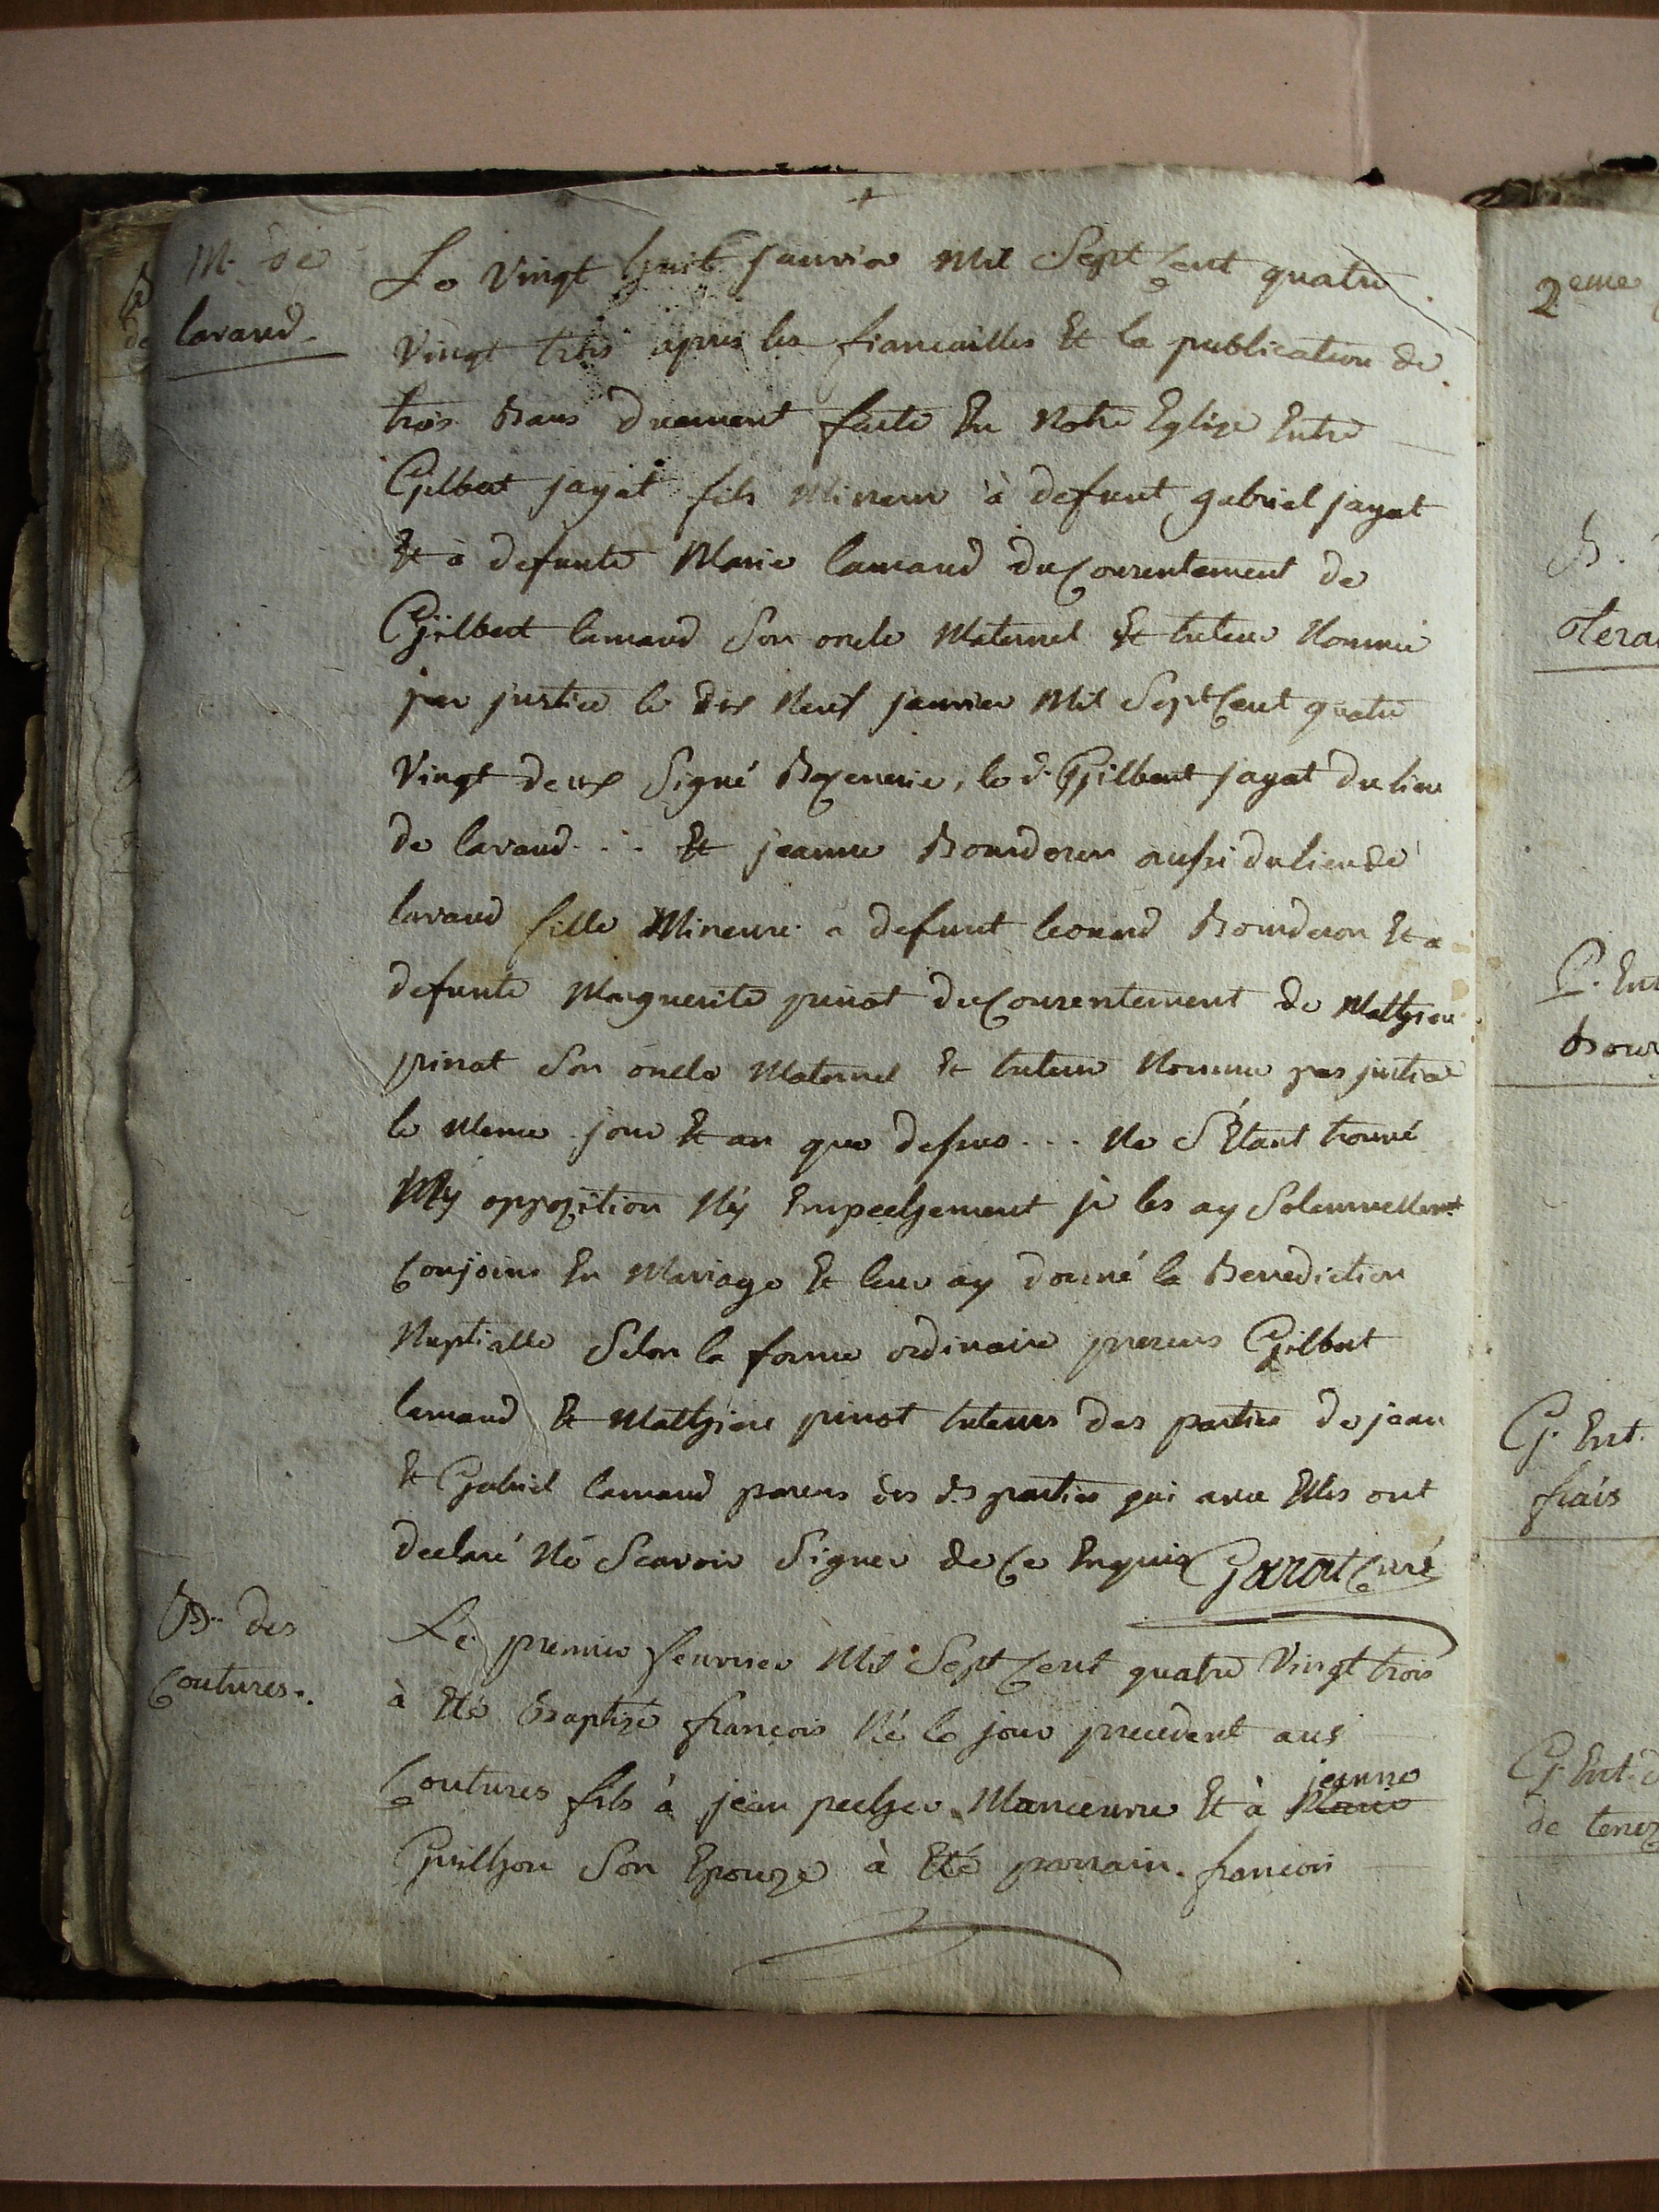 M. de
lavaud.
Le vingt huit janvier mil sept cent quatre
vingt trois apres les fiancailles et la publication de
trois bans duement faite en notre Eglize entre
Gilbert jayat fils mineur à defunt gabriel jayat
et à defunte Marie lamaud du consentement de
Gilbert lamaud son oncle maternel et tuteur nommé
par justice le dix neuf janvier mil sept cent quatre
vingt deux signé le d. Gilbert jayat du lieu
de lavaud... et jeanne Bourderon aussi du lieu de
lavaud fille mineure à defunt leonard Bourderon et a
defunte Marguerite pinot du consentement de Mathieu
pinot son oncle maternel et tuteur nommé par justice
le meme jour et an que dessus... ne s'étant trouvé
ny oppozition ny empechement je les ay solennellemt
conjoins en mariage et leur ay donné la Benediction
nuptialle selon la forme ordinaire presens Gilbert
lamaud et Mathieu pinot tuteurs des parties de jean
et Gabriel lamaud parens des ds parties qui avec elles ont
declaré ne scavoir signer de ce enquis Garat curé
B. des
coutures..
Le premier fevrier mil sept cent quatre vingt trois
à été Baptizé françois né le jour precedent aus
coutures fils à jean pecher Manoeuvre et à jeanne
Guilhon son epouze à été parrain. françois
2eme
B.
P. Ent
Bour
G. Ent.
frais
G. Ent. d